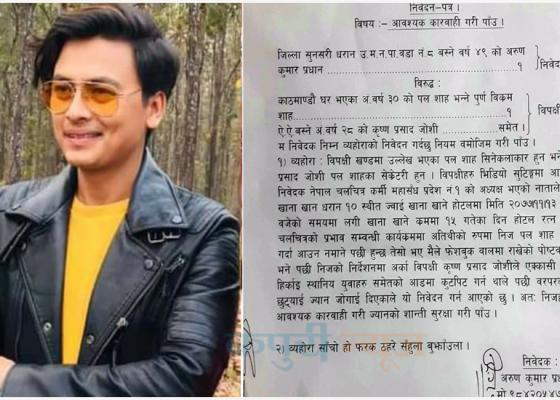 निवेदन-पत्र ।
विषय :- आवश्यक कारवाही गरी पाँउ ।
जिल्ला सुनसरी धरान उ.म.न.पा.वडा नं ८ बस्ने वर्ष ४९ को अरुण
कुमार प्रधान ........ १ निवेद
विरुद्ध :
काठमाण्डौ घर भएका अं.वर्ष ३० को पल शाह भन्ने पुर्ण विक्रम
शाह........१
विपक्षी
ऐ ऐ बस्ने अं.वर्ष २८ को कृष्ण प्रसाद जोशी ........ समेत ।
म निवेदक निम्न व्यहोराको निवेदन गर्दछु नियम बमोजिम गरी पाउँ ।
१) व्यहोरा : विपक्षी खण्डमा उल्लेख भएका पल शाह सिनेकलाकार हुन भने
प्रसाद जोशी पल शाहका सेक्रेटरी हुन । विपक्षीहरु भिडियो सुटिङ्गमा आ
निवेदक नेपाल चलचित्र कर्मी महासंध प्रदेश नं.१ को अध्यक्ष भएको नाताले
खाना खान धरान १० स्थीत ज्वाई खाना खाने होटलमा मिति २०७७।११।१३
बजेको समयमा लगी खाना खाने क्रममा १५ गतेका दिन होटल रत्न
चलचित्रको प्रभाव सम्वन्धी कार्यक्रममा अतिथीको रुपमा निज पल शाह
गर्दा आउन नमाने पछी हुन्छ तेसो भए मैले फेशबुक वालमा राखेको पोष्टक
भने पछी निजको निर्देशनमा अर्का विपक्षी कृष्ण प्रसाद जोशीले एक्कासी
हिर्काइ स्थानिय युवाहरु समेतको आडमा कूटपिट गर्न थाले पछी वरपर
छुट्याई ज्यान जोगाई दिएकाले यो निवेदन गर्न आएको छु । अत: निज
आवश्यक कारवाही गरी ज्यानको शान्ती सुरक्षा गरी पाउँ ।
२) व्यहोरा साँचो हो फरक ठहरे सँहुला बुझाँउला ।
निवेदक :
अरुण कुमार प्रध